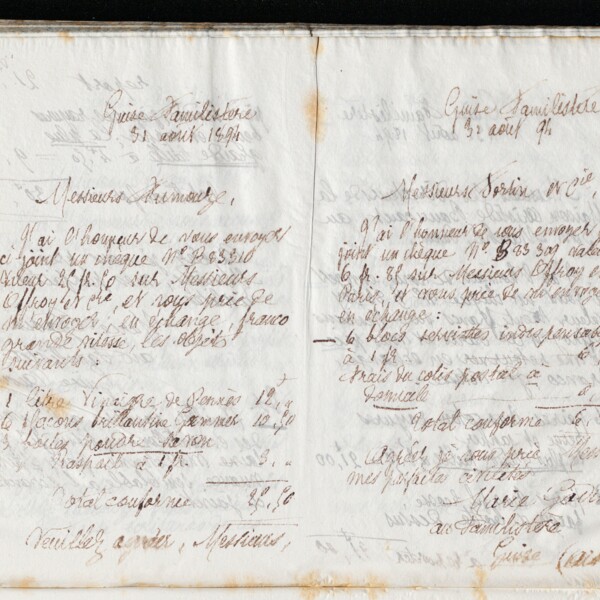 Guise Familistère
31 août 1894
Messieurs
J'ai l'honneur de vous envoyer
ci joint un chèque N° B 83310
valeur 25 fr. 50 sur Messieurs
Offroy et Cie, et vous prie de
m'envoyer, en échange, franco
grande vitesse, les objets
suivants :
1 litre Vinaigre de Pennès 12
6 flacons brillantine 10,50
3 poudre
Raspail à 1 fr. 3
Total conforme 25,50
Veuillez agréer, Messieurs,
Guise Familistère
31 août 94
Messieurs Fortin et Cie,
J'ai l'honneur de vous envoyer
joint un chèque N° B 83309
6 fr. 85 sur Messieurs Offroy et
Paris, et vous prie de m'envoyer
en échange :
6 blocs serviettes indispensables
à 1 fr 6
Frais du colis postal à
domicile
Total conforme 6
agréer je vous prie
mes parfaites civilités
Marie
au Familistère
Guise